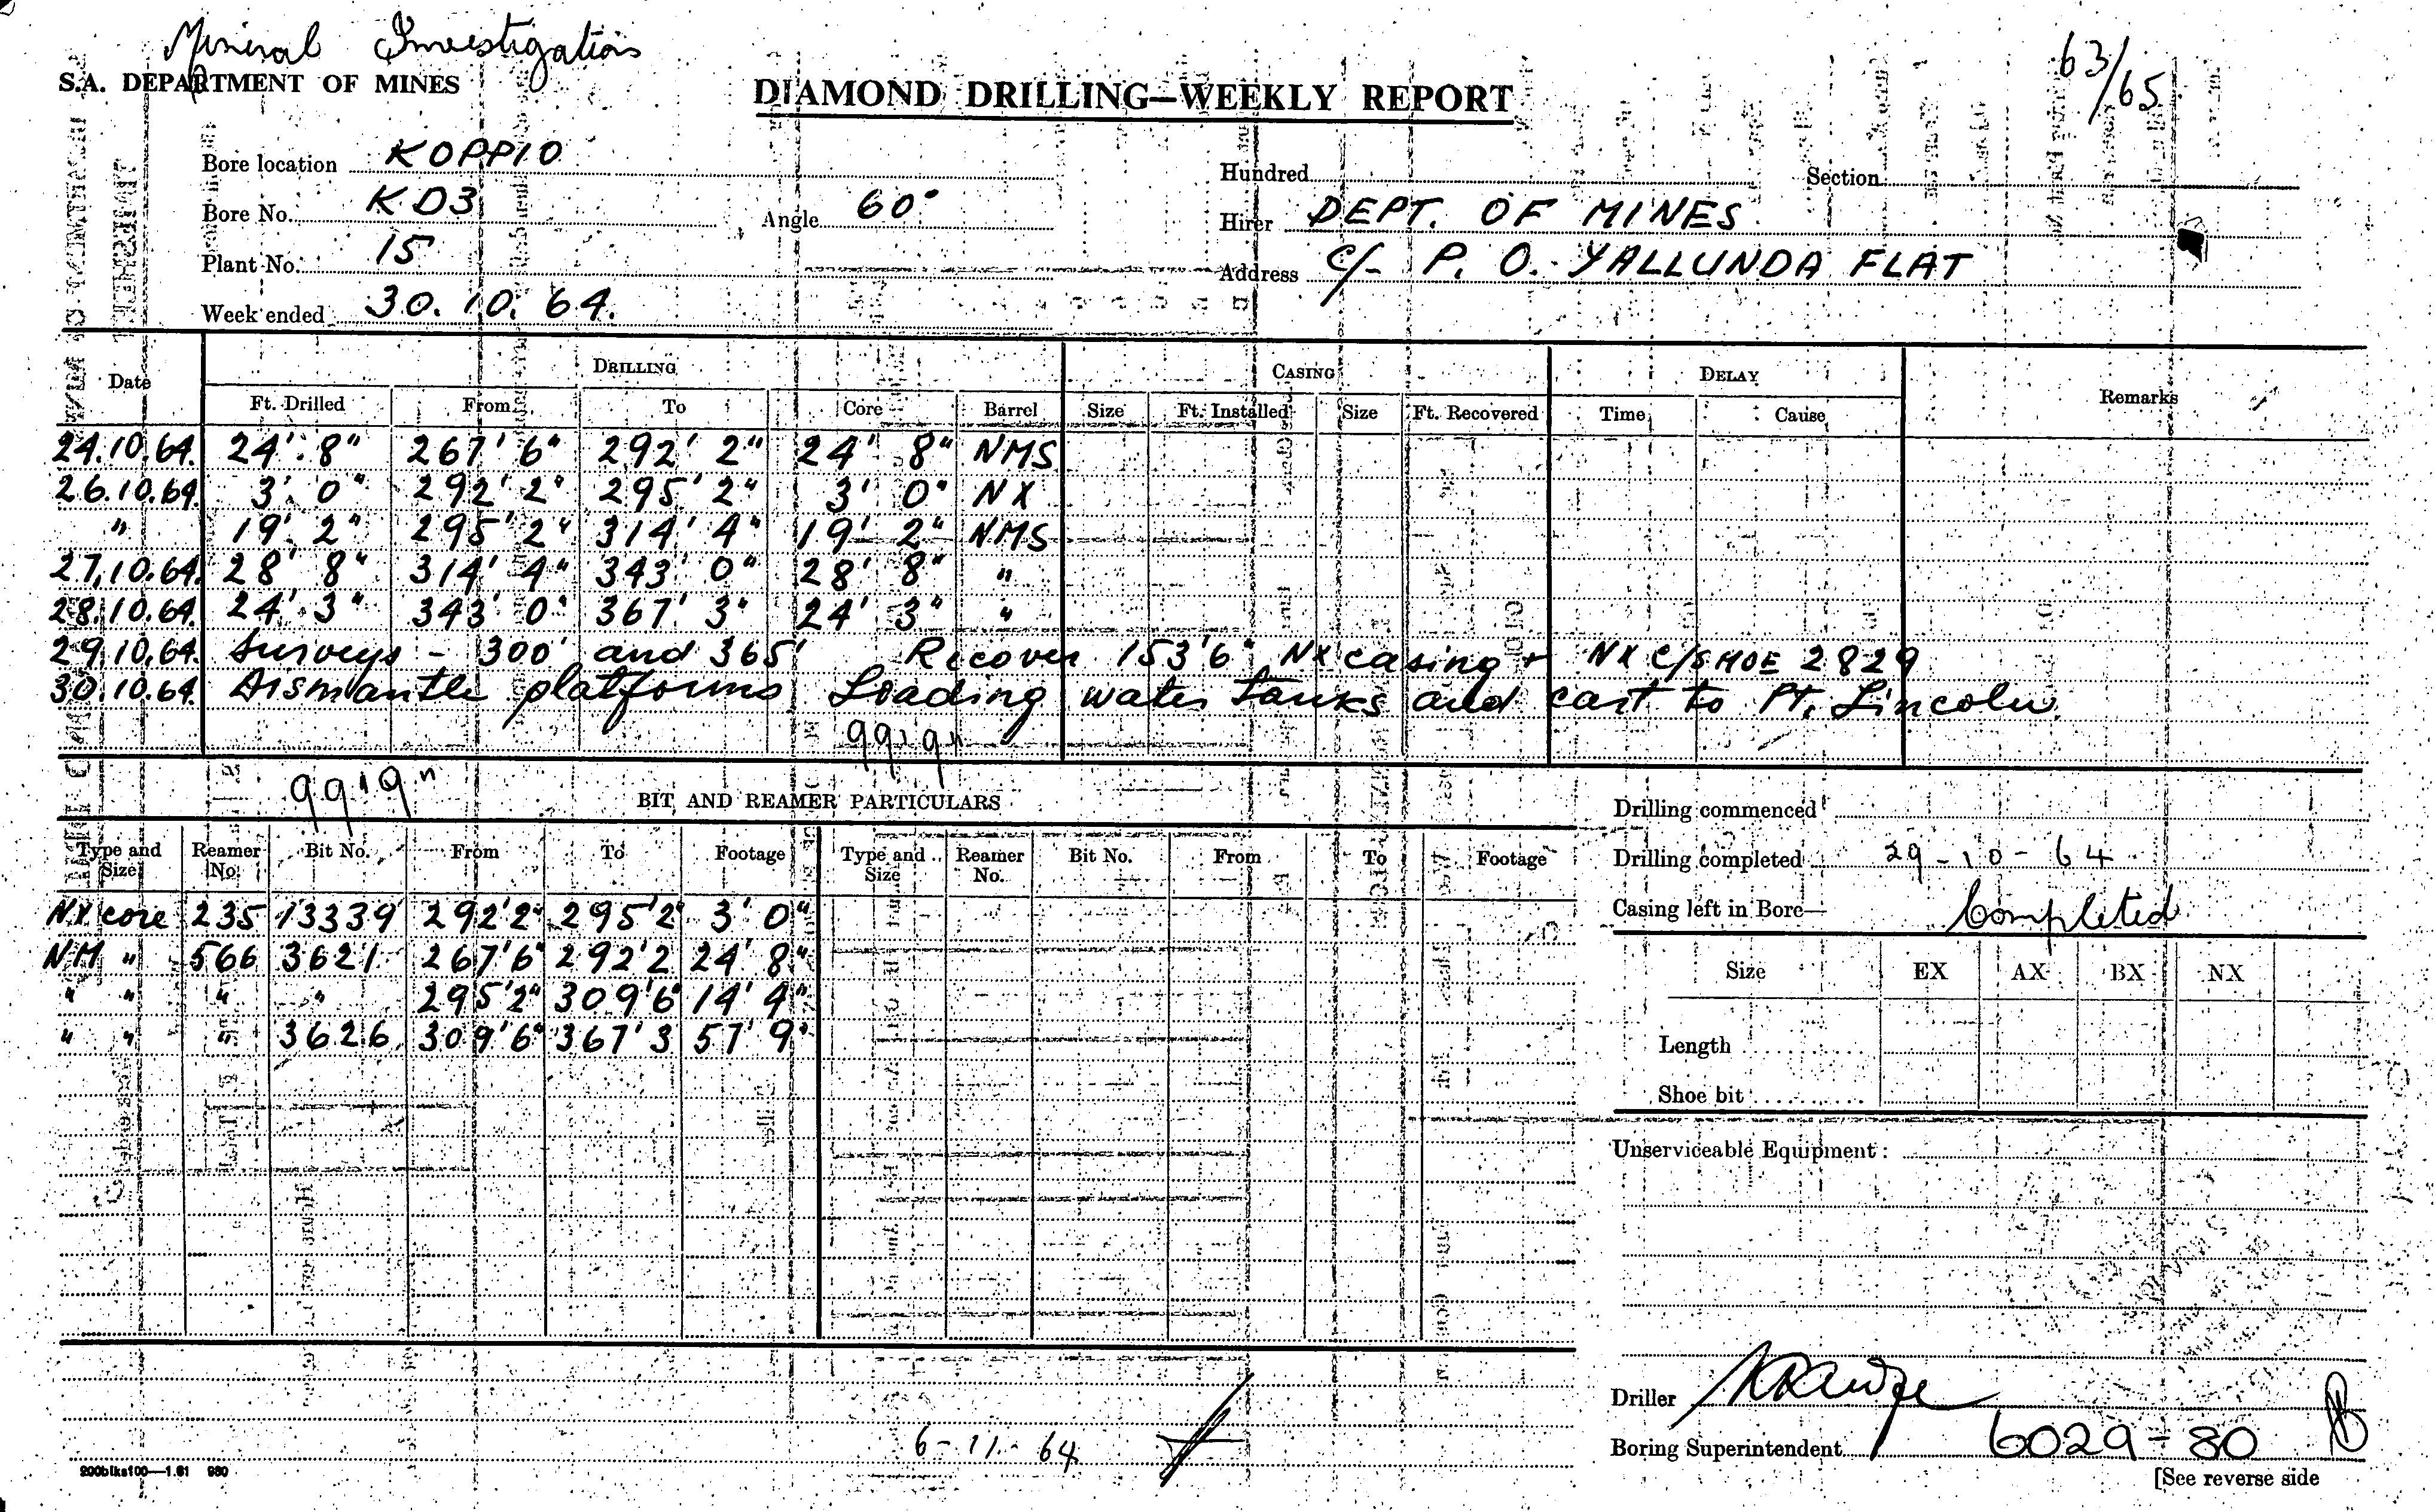 Mineral Investigations
63/65
S.A. DEPARTMENT OF MINES
DIAMOND DRILLING—WEEKLY REPORT
Bore location KOPPIO
Hundred Section
Bore No. KD3 Angle 60°
Hirer DEPT. OF MINES
Plant No. 15
Address C/- P. O. YALLUNDA FLAT
Week ended 30.10.64.
Date DRILLING CASING DELAY Remarks
Ft. Drilled From To Core Barrel Size Ft. Installed Size Ft. Recovered Time Cause
24.10.64. 24' 8" 267' 6" 292' 2" 24' 8" NMS
26.10.64. 3' 0" 292' 2" 295' 2" 3' 0" NX
" 19' 2" 295' 2" 314' 4" 19' 2" NMS
27.10.64. 28' 8" 314' 4" 343' 0" 28' 8" "
28.10.64. 24' 3" 343' 0" 367' 3" 24' 3" "
29.10.64. Surveys - 300' and 365' Recover 153'6" NX casing + NX C/SHOE 2829
30.10.64. Dismantle platforms Loading water tanks and cart to Pt. Lincoln.
99'9"
99'9"
BIT AND REAMER PARTICULARS
Type and Size Reamer No. Bit No. From To Footage Type and Size Reamer No. Bit No. From To Footage
NX core 235 13339 292'2" 295'2" 3' 0"
NM " 566 3621 267'6" 292'2 24' 8"
" " " " 295'2" 309'6" 14' 4"
" " " 3626 309'6" 367'3 57' 9"
Drilling commenced
Drilling completed 29-10-64
Casing left in Bore— Completed
Size EX AX BX NX
Length
Shoe bit
Unserviceable Equipment :
Driller
6-11-64
Boring Superintendent 6029-80
200blks100—1.61 980
[See reverse side